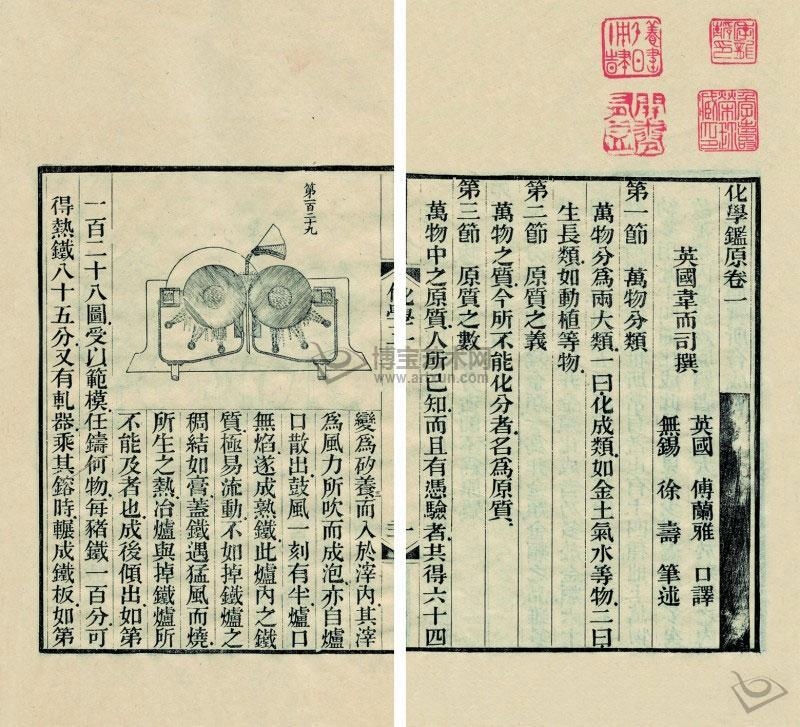 化學鑑原卷一
英國韋而司撰
英國 傅蘭雅 口譯
無錫 徐壽 筆述
第一節 萬物分類
萬物分爲兩大類一曰化成類如金土氣水等物二曰
生長類如動植等物
第二節 原質之義
萬物之質今所不能化分者名爲原質
第三節 原質之數
萬物中之原質人所已知而且有憑驗者共得六十四
化學一
一
第一百二十九
變爲矽養而入於滓內其滓
爲風力所吹而成泡亦自爐
口散出鼓風一刻有半爐口
無焰遂成熟鐵此爐內之鐵
質極易流動不如掉鐵爐之
稠結如膏蓋鐵遇猛風而燒
所生之熱冶爐與掉鐵爐所
不能及者也成後傾出如第
一百二十八圖受以範模任鑄何物每豬鐵一百分可
得熱鐵八十五分又有軋器乘其鎔時輾成鐵板如第
博宝艺术网
www.artxun.com